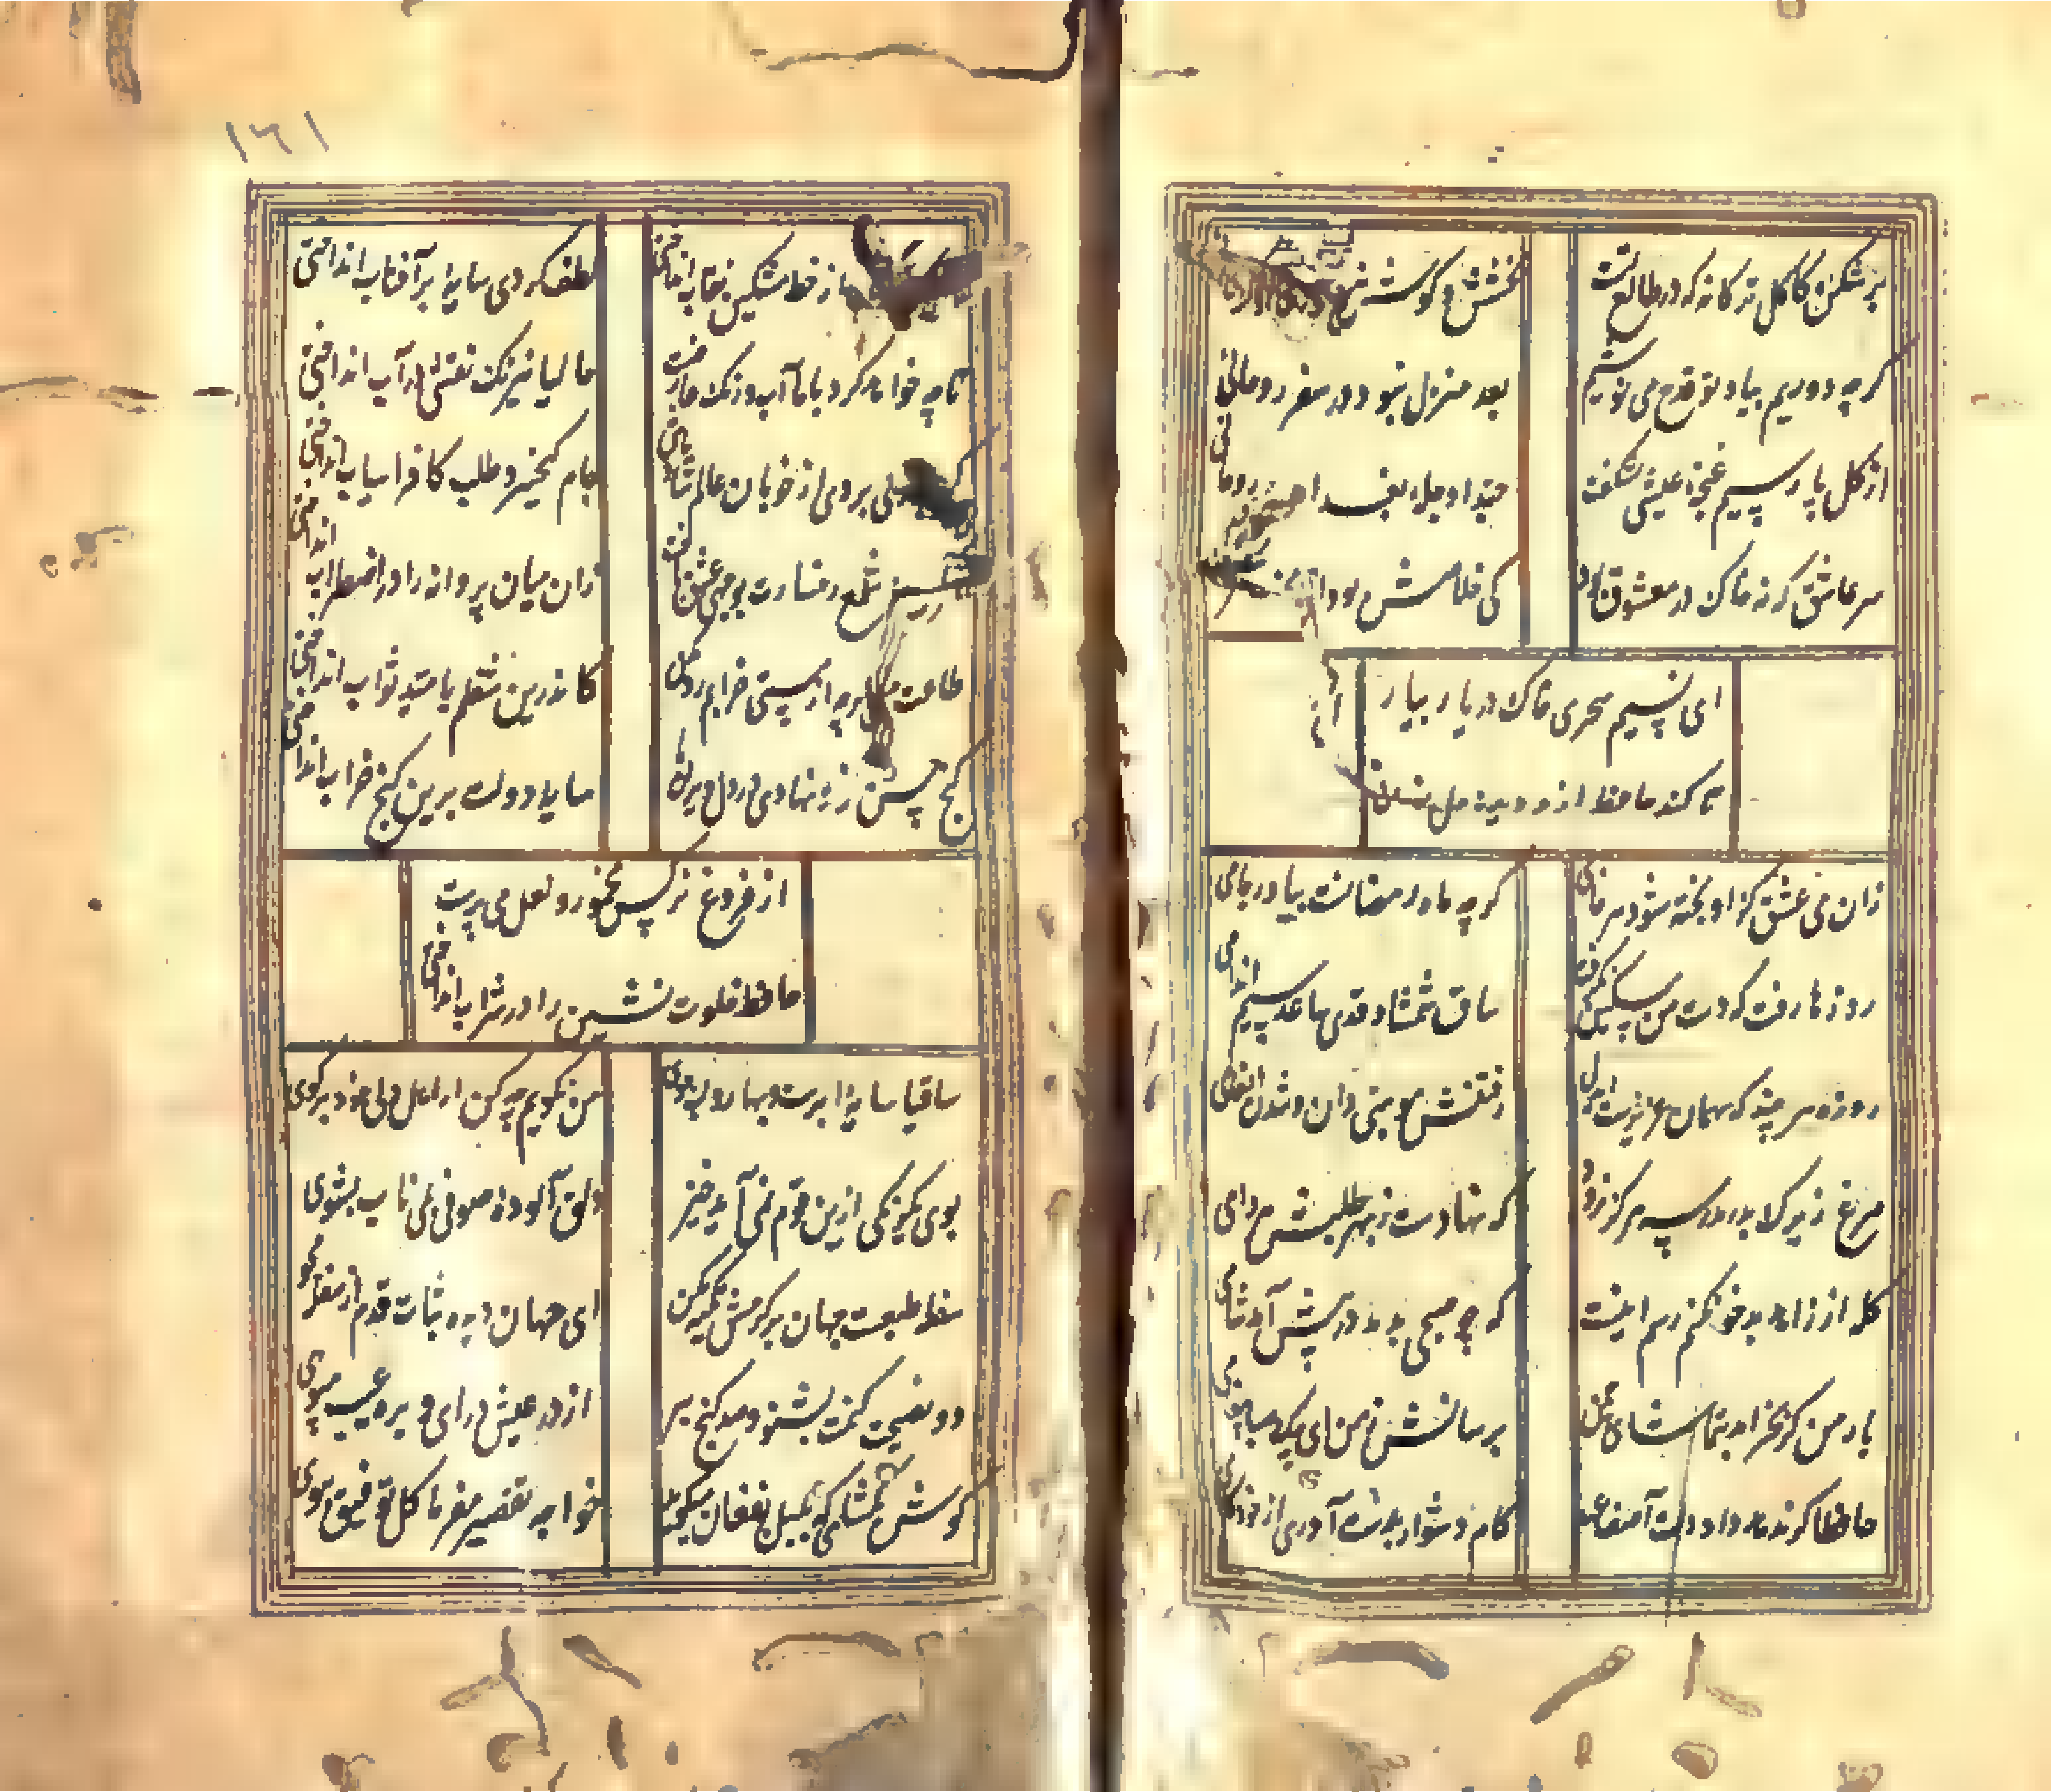 برشکن کاکل ترکانه که در طالع تست
بخشش و کوشش
کرچه دوریم بیاد تو قدح می نوشیم
بعد منزل نبود در سفر روحانی
از کل پارسیم غنچهٔ عیشی نشکفت
حبذا دجلهٔ بغداد
سر عاشق که نه خاک در معشوق بود
کی خلاصش بود از
ای نسیم سحری خاک در یار بیار
تا کند حافظ ازو دیده دل نورانی
زان می عشق کزو پخته شود هر خامی
کرچه ماه رمضانست بیاور جامی
روزها رفت که دست من مسکین نکرفت
ساق شمشاد قدی ساعد سیم اندامی
روزه هر چند که مهمان عزیزست ای دل
رفتنش موهبتی دان و شدن انعامی
مرغ زیرک بدر خانقه نپرد
که نهادست بهر مجلس دامی
کله از زاهد بدخو نکنم رسم اینست
که چو صبحی بدمد در پیش آید شامی
یار من کر بخرامد بتماشای چمن
برسانش ز من ای پیک صبا پیغامی
حافظا کر ندهد داد دلت آصف عهد
کام دشوار بدست آوری از خودکامی
١٦١
از خط مشکین نقاب انداختی
لطف کردی سایهٔ بر آفتاب انداختی
تا چه خواهد کرد با ما آب و رنک عارضت
حالیا نیرنک نقشی در آب انداختی
بردی از خوبان عالم شاد باش
جام کیخسرو طلب کافراسیاب انداختی
شمع رخسارت بوجهی عشق باخت
زان میان پروانه را در اضطراب انداختی
طاعت من کرچه از مستی خرابم رد مکن
کاندرین شغلم بامید ثواب انداختی
کنج عشق خود نهادی در دل ویران ما
سایهٔ دولت برین کنج خراب انداختی
از فروغ نرکس مخمور و لعل می پرست
حافظ خلوت نشین را در شراب انداختی
ساقیا سایهٔ ابرست و بهار و لب جوی
من نکویم چه کن ار اهل دلی خود تو بکوی
بوی یکرنکی ازین قوم نمی آید خیز
دلق آلودهٔ صوفی بمی ناب بشوی
سفله طبعست جهان بر کرمش تکیه مکن
ای جهان دیده ثبات قدم از سفله مجوی
دو نصیحت کنمت بشنو و صد کنج ببر
از در عیش درآی و بره عیب مپوی
کوش بکشای که بلبل بفغان میکوید
خواجه تقصیر مفرما کل توفیق ببوی